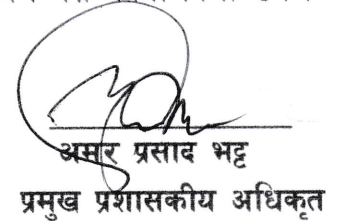 अमर प्रसाद भट्ट
प्रमुख प्रशासकीय अधिकृत